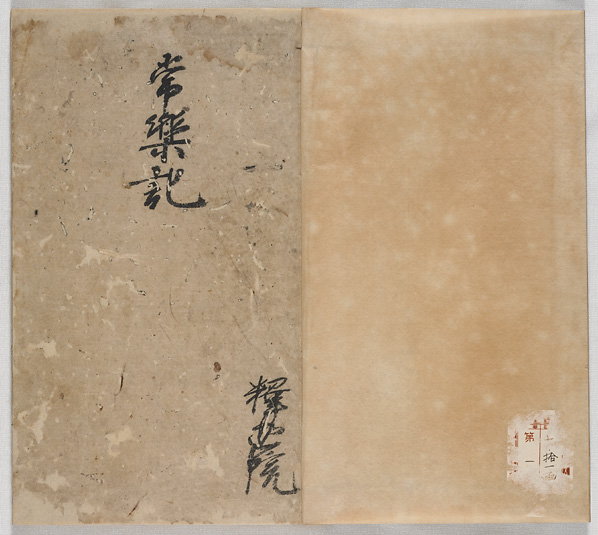 拾一
第一
常樂記
釋迦院